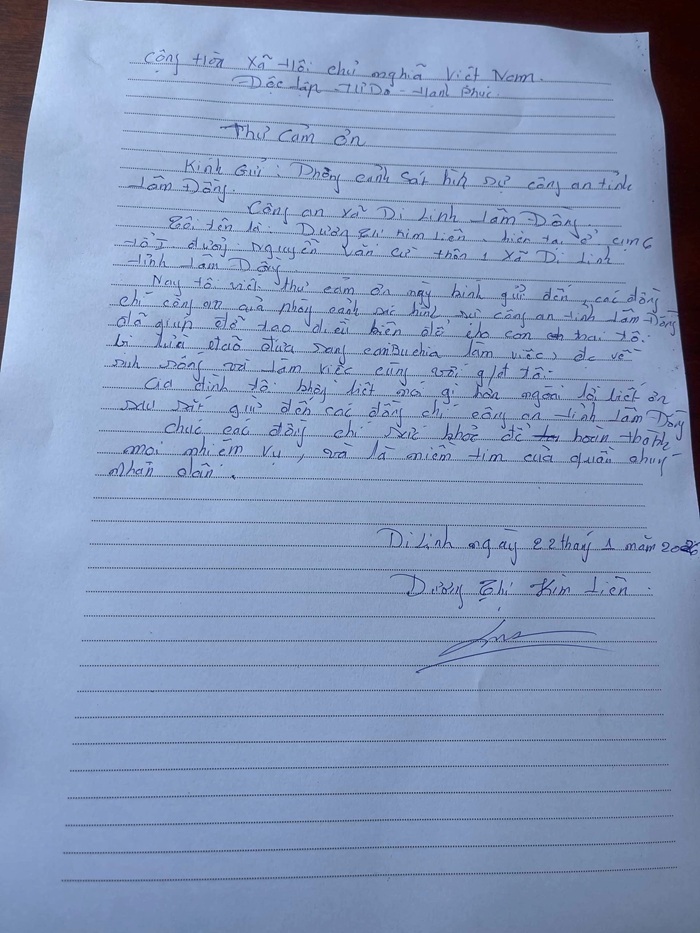 Cộng Hòa Xã Hội chủ nghĩa Việt Nam.
Độc lập - Tự Do - Hạnh Phúc.
Thư Cảm ơn
Kính Gửi: Phòng cảnh Sát hình sự công an tỉnh
Lâm Đồng.
Công an xã Di Linh Lâm Đồng.
Tôi tên là: Dương Thị Kim Liên, hiện tại ở cụm 6
tổ 1 đường Nguyễn Văn Cừ thôn 1 Xã Di Linh
tỉnh Lâm Đồng.
Nay tôi viết thư cảm ơn này kính gửi đến, các đồng
chí công an của phòng cảnh sác hình sự công an tỉnh Lâm Đồng
đã giúp đỡ tạo điều kiện cho con trai tô.
bị lừa đảo đưa sang camBuchia làm việc, đc về
sinh sống và làm việc cùng với g/đ tô.
Gia đình tôi không biết nói gì hơn ngoài lời biết ơn
sâu sắt gửi đến các đồng chí công an tỉnh Lâm Đồng
chúc các đồng chí sức khỏe để hoàn thành
mọi nhiệm vụ, và là niềm tin của quần chúng
nhân dân.
Di Linh ngày 22 tháng 1 năm 2026
Dương Thị Kim Liên.